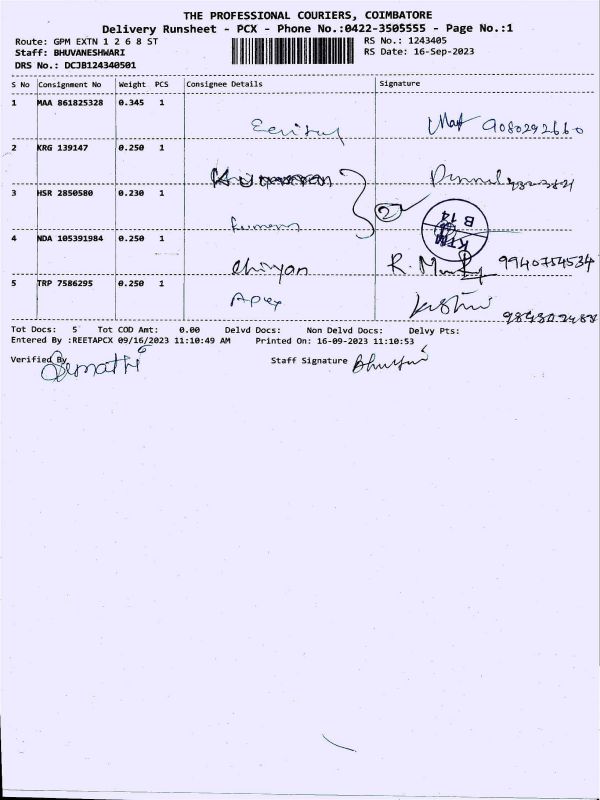 THE PROFESSIONAL COURIERS, COIMBATORE
Delivery Runsheet - PCX - Phone No.:0422-3505555 - Page No.:1
Route: GPM EXTN 1 2 6 8 ST
RS No.: 1243405
Staff: BHUVANESHWARI
RS Date: 16-Sep-2023
DRS No.: DCJB124340501
S No Consignment No Weight PCS Consignee Details Signature
1 MAA 861825328 0.345 1
9080292660
2 KRG 139147 0.250 1
3 HSR 2850580 0.230 1
2
B 14
4 NDA 105391984 0.250 1
R. 9940754534
5 TRP 7586295 0.250 1
Apex
Tot Docs: 5 Tot COD Amt: 0.00 Delvd Docs: Non Delvd Docs: Delvy Pts:
Entered By :REETAPCX 09/16/2023 11:10:49 AM Printed On: 16-09-2023 11:10:53
Verified By Staff Signature